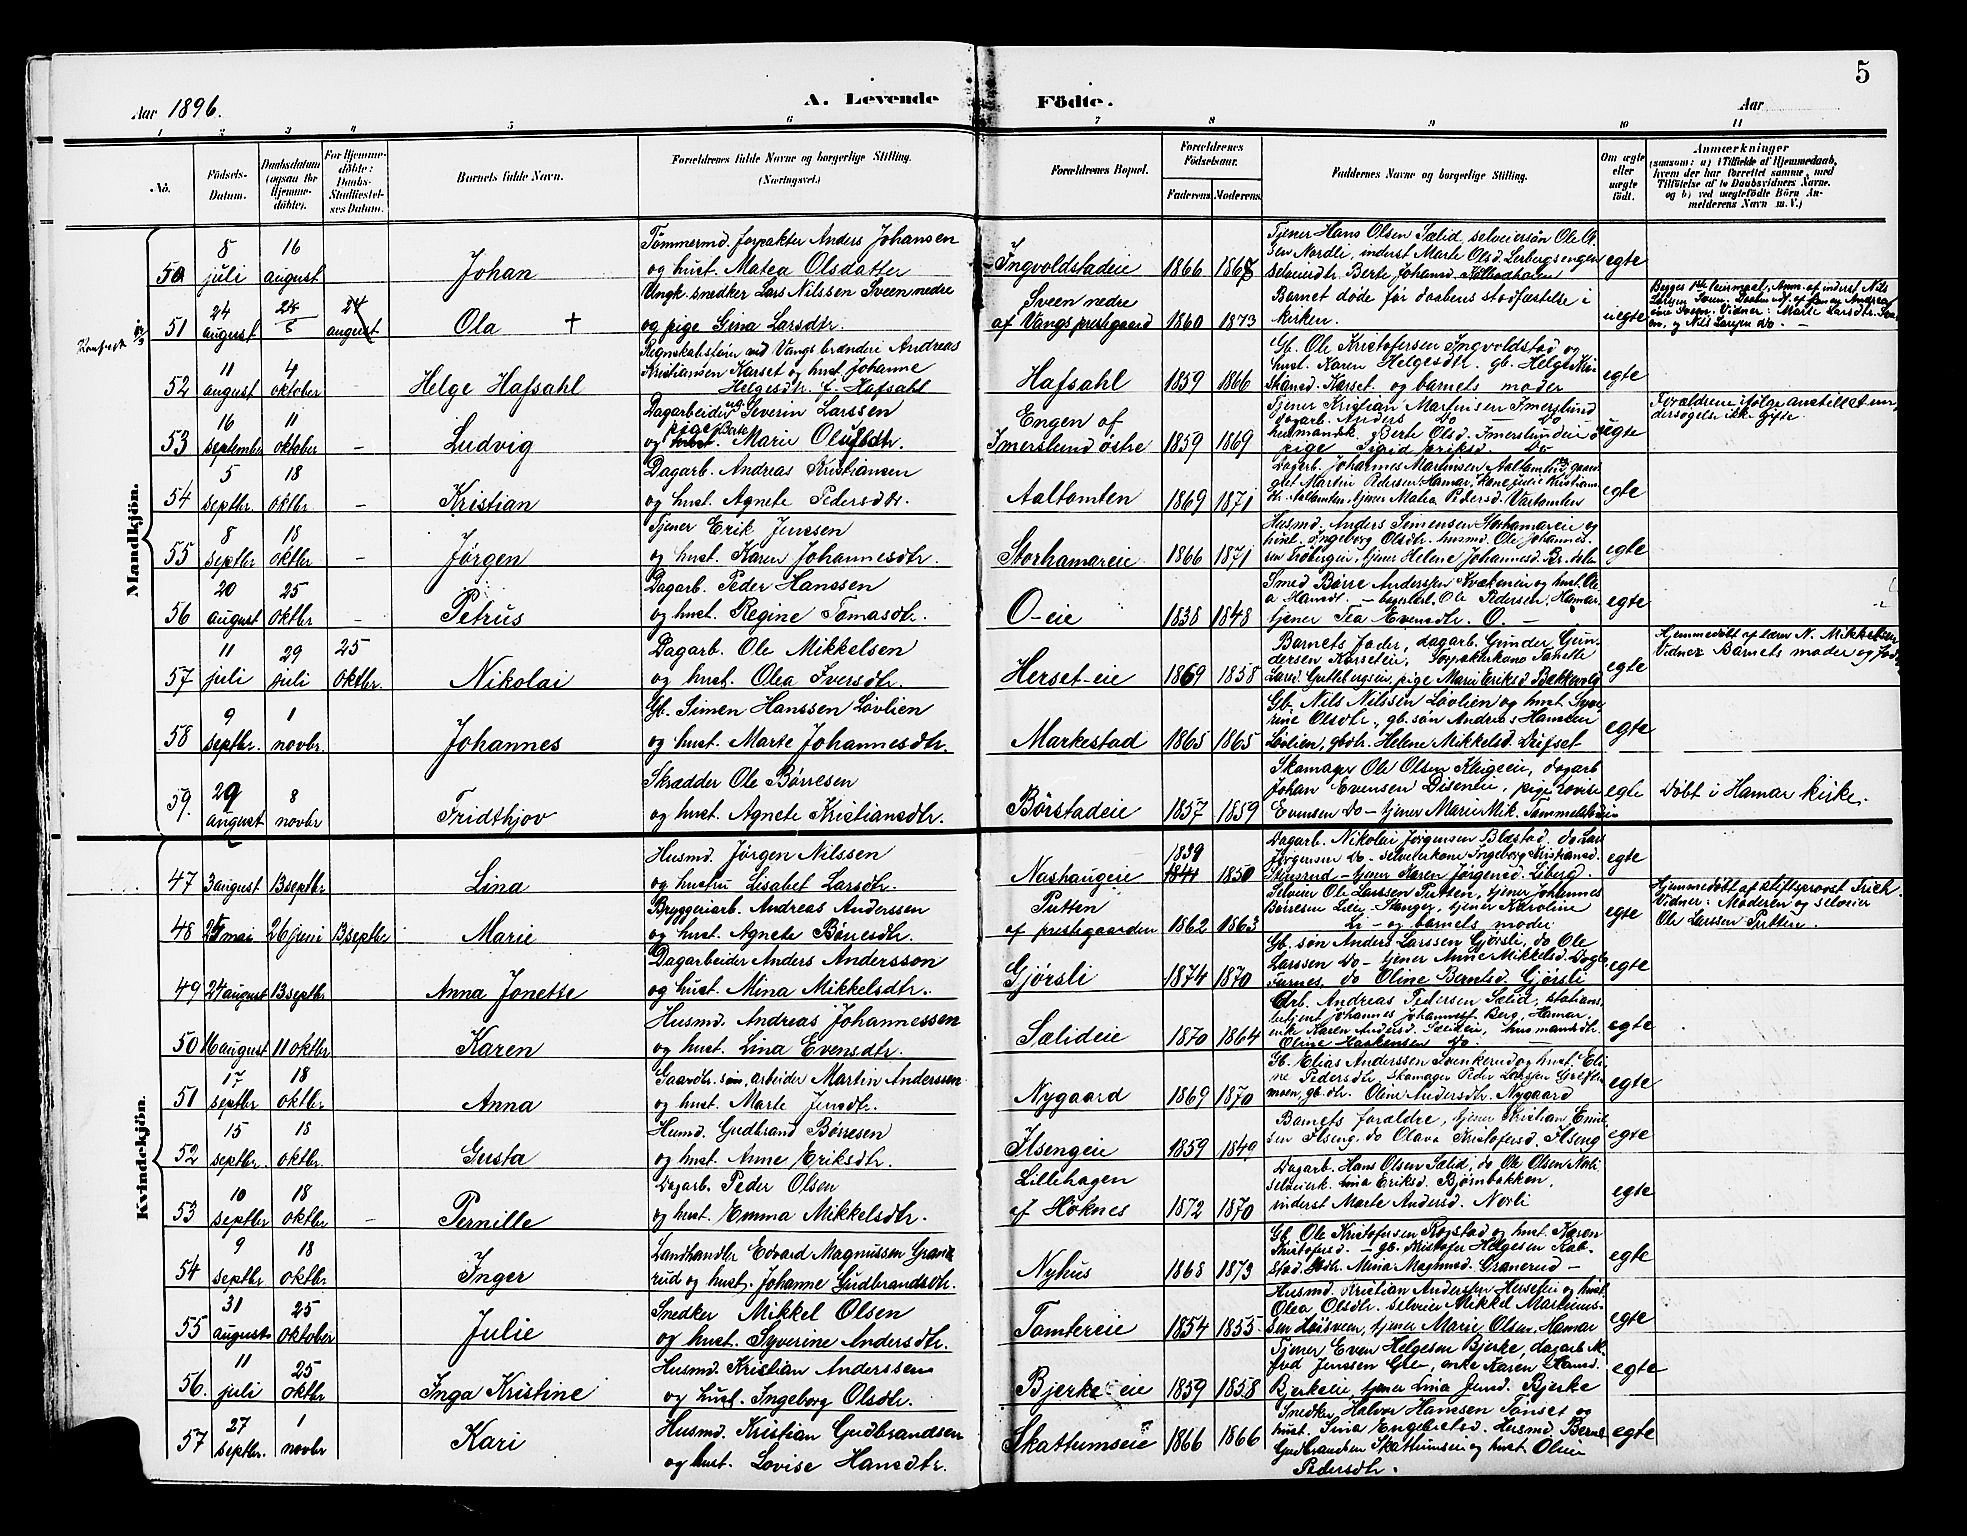 5
Aar 1896.
A. Levende Födte.
Aar
1 2 3 4 5 6 7 8 9 10 11
No.
Födsels-Datum.
Daabsdatum (ogsaa for Hjemmedöbte).
For Hjemmedöbte: Daabs-Stadfæstelses Datum.
Barnets fulde Navn.
Forældrenes fulde Navne og borgerlige Stilling. (Næringsvei.)
Forældrenes Bopæl.
Forældrenes Födselsaar.
Faderens Moderens
Faddernes Navne og borgerlige Stilling.
Om ægte eller uægte födt.
Anmærkninger
(saasom: a) i Tilfælde af Hjemmedaab, hvem der har forrettet samme, med Tilföielse af to Daabsvidners Navne, og b) ved uægtefödte Börn Anmelderens Navn m. V.)
Mandkjön.
50 8 juli 16 august Johan
Tømmermd. forpakter Anders Johansen
og hust. Matea Olsdatter
Ingvoldstadeie 1866 1868
Tjener Hans Olsen Sælid, selveiersøn Ole Ol
sen Nordli, inderst Marte Olsd. Lerbergsengen
selveierdtr. Berte Johansd.
egte
51 24 august 24/8 24 august Ola †
Ungk. snedker Lars Nilssen Sveen nedre
og pige Gina Larsdtr.
Sveen nedre
af Vangs prestegaard 1860 1873
Barnet døde før daabens stadfæstelse i
kirken.
uegte
52 11 august 4 oktober - Helge Hafsahl
Regnskabsfører ved Vangs brænderi Andreas
Kristiansen Karset og hust. Johanne
Helgesdtr. f. Hafsahl
Hafsahl 1859 1866
Gb. Ole Kristofersen Ingvoldstad og
hust. Karen Helgesdtr. gb. Helge Kri
stiansd. Karset og barnets moder
egte
53 16 september 11 oktober - Ludvig
Dagarbeider ug. Severin Larssen
og pige Berte Marie Olsdtr.
Engen af
Imerslund østre 1859 1869
Tjener Kristian Martinsen Imerslund
dagarb. Anders Do - Do -
husmandsk. Berte Olsd. Imerslundeie
pige Sigrid Eriksd. Do
uegte
Forældrene ifølge anstillet un
dersøgelse ikke gifte.
54 5 septbr. 18 oktbr. - Kristian
Dagarb. Andreas Kristiansen
og hust. Agnete Pedersdtr.
Aaltamten 1869 1871
Dagarb. Johannes Martinsen Aaltamten, gaard
gut Martin Pedersen Hamar, kone Julie Kristians
Aaltamten, tjener Matea Pedersd. Vartamten
egte
55 8 septbr. 18 oktbr - Jørgen
Tjener Erik Jenssen
og hust. Karen Johannesdtr.
Storhamareie 1866 1871
Husmd. Anders Simensen Storhamareie og
hust. Ingeborg Olsdtr. husmd. Ole Johannes
sen Frøbergeie, tjener Helene Johannesd.
egte
56 20 august 25 oktbr Petrus
Dagarb. Peder Hanssen
og hust. Regine Tomasdtr.
O-eie 1838 1848
Smed Børre Anderssen Kvækeneie og hust. Ole
a Hansdt. - bagerlærl. Ole Pedersen, Hamar
tjener Tea Evensdtr. O. -
egte
57 11 juli 29 juli 25 oktbr. Nikolai
Dagarb. Ole Mikkelsen
og hust. Olea Iversdtr.
Herset-eie 1869 1858
Barnets fader, dagarb. Gunder Gun-
dersen Karseteie, Forpakterkone Janette
Larsd. Gutlebergseie, pige Marie Eriksd. Bækkevold
egte
Hjemmedøbt af lærer N. Mikkelsen
Vidner Barnets moder og fad
58 9 septbr. 1 novbr. Johannes
Gb. Simen Hanssen Løvlien
og hust. Marte Johannesdtr.
Markestad 1865 1865
Gb. Nils Nilssen Løvlien og hust Syve
rine Olsdtr., gb. søn Andreas Hanssen
Løvlien, gbdtr. Helene Mikkelsd. Vifset
egte
59. 29 august 8 novbr Fridthjov
Skrædder Ole Børresen
og hust. Agnete Kristiansdtr.
Børstadeie 1857 1859
Skomager Ole Olsen Klugeeie, dagarb
Johan Evensen Diseneie, pige Lovise
Evensen Do - tjener Marie Mik.
egte
Døbt i Hamar kirke.
Kvindekjön.
47 3 august 13 septbr Lina
Husmd. Jørgen Nilssen
og hustru Lisabet Larsdtr.
Nashaugeie 1839 1841 1850
Dagarb. Nikolai Jørgensen Blæstad, do Lars
Jørgensen Do - selveierkone Ingeborg Kristiansd.
Stiusrud - tjener Karen Jørgensd. Liberg.
egte
48 25 mai 26 juni 13 septbr Marie
Bryggeriarb. Andreas Anderssen
og hust. Agnete Børresdtr.
Putten
af prestegaarden 1862 1863
Selveier Ole Larssen Putten, tjener Johannes
Børresen Lieie - Stanger, tjener Karoline
Li - og barnets moder
egte
Hjemmedøbt af stiftsprovst Frich.
Vidner: Moderen og selveier
Ole Larssen Putten.
49 24 august 13 septbr Anna Jonette
Dagarbeider Anders Andersson
og hust. Mina Mikkelsdtr.
Gjørsli 1874 1870
Gb. søn Anders Larssen Gjørsli, do Ole
Larssen Do - tjener Anne Mikkelsd.
Furnes, do Oline Berntsd. Gjørsli
egte
50 16 august 11 oktbr Karen
Husmd. Andreas Johannessen
og hust. Lina Evensdtr.
Sælideie 1870 1864
Arb. Andreas Pedersen Sælid, stations
betjent Johannes Johannes. Berg, Hamar,
enke Karen Andersd. Sælideie, husmandsdtr.
Oline Do. -
egte
51 17 septbr 18 oktbr Anna
Gaardbr. søn, arbeider Martin Anderssen
og hust. Marte Jensdtr.
Nygaard 1869 1870
Gb. Elias Anderssen Svenkerud og hust. Eli-
ne Pedersdtr. skomager Peder Larssen
moen, gb. dtr. Oline Andersdtr. Nygaard
egte
52 15 septbr 18 oktbr. Gusta
Husmd. Gudbrand Børresen
og hust. Anne Eriksdtr.
Ilsengeie 1859 1849
Barnets forældre, tjener Kristian Emil
sen Ilseng, do Olava Kristofersd. Ilseng
egte
53 10 septbr 18 oktbr - Pernille
Dagarb. Peder Olsen
og hust. Emma Mikkelsdtr.
Lillehagen
af Høknes 1872 1870
Dagarb. Hans Olsen Sælid, do Ole Olsen Norli
selveierk. Lina Eriksd. Bjørnbakken,
inderst Marte Andersd. Norli
egte
54 9 septbr 18 oktbr. Inger
Landhandler Edvard Magnussen Grane
rud og hust. Johanne Gudbrandsdtr.
Nyhus 1868 1873
Gb. Ole Kristofersen Rogstad og hust. Karen
Kristofersd. - gb. Kristofer Helgesen Rab-
stad, Mina Magnusd. Granerud -
egte
55 31 august 25 oktober Julie
Snedker Mikkel Olsen
og hust. Syverine Andersdtr.
Tomtereie 1854 1855
Husmd. Kristian Anderssen Herseteie og hust.
Olea Olsdtr. selveier Mikkel Martinus-
sen Høisveen, tjener Marie Olsen, Hamar
egte
56. 11 juli 25 oktbr Inga Kristine
Husmd. Kristian Anderssen
og hust. Ingeborg Olsdtr.
Bjerke-eie 1859 1858
Tjener Even Helgesen Bjerke, dagarb. Al
fred Jenssen Gteie, enke Karen Hansd.
Bjerkeeie, tjener Lina Jensd. Bjerke
egte
57 27 septbr. 1 novbr Kari
Husmd. Kristian Gudbrandsen
og hust. Lovise Hansdtr.
Skattumseie 1866 1866
Snedker Halvor Hanssen Tønset og
hust. Lina Engebretsd. Husmd Bernt
Gudbrandsen Skattumseie og hust Oline
Pedersdtr.
egte